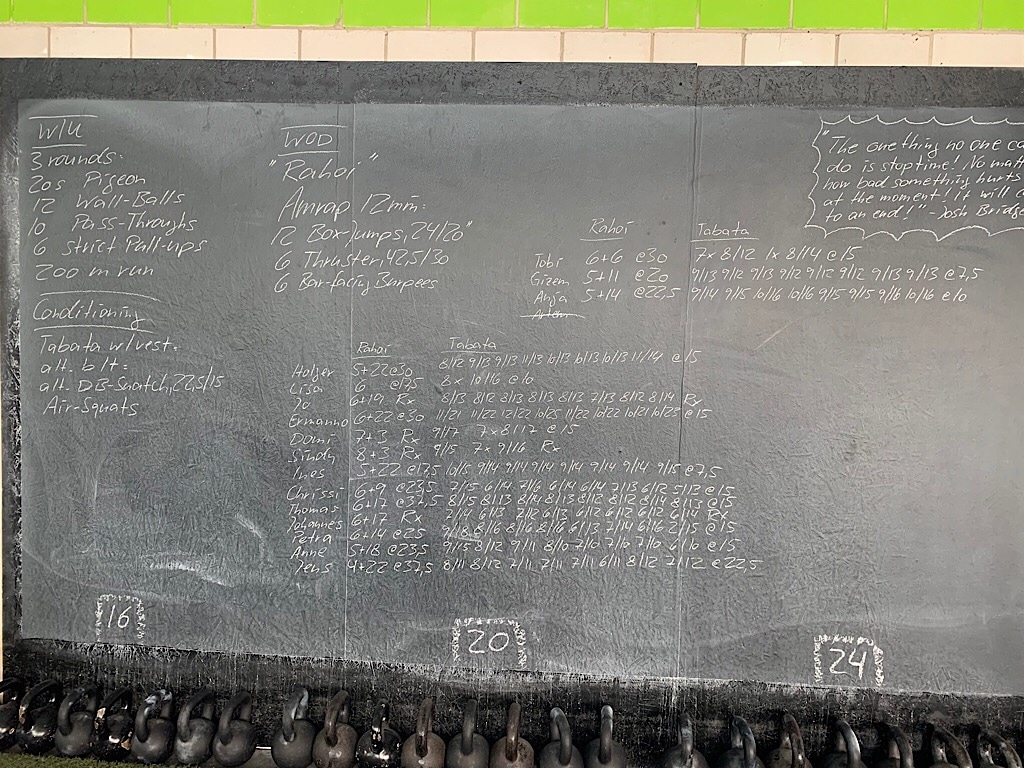 W/U
3 rounds:
20s Pigeon
12 Wall-Balls
10 Pass-Throughs
6 strict Pull-ups
200 m run
Conditioning
Tabata w/vest:
alt. b/t:
alt. DB-Snatch, 22,5/15
Air-Squats
WOD
"Rahoi"
Amrap 12 min:
12 Box Jumps, 24/20"
6 Thruster, 42,5/30
6 Bar-facing Burpees
"The one thing no one ca
do is stop time! No matt
how bad something hurts
at the moment! It will c
to an end!" - Josh Bridge
Rahoi Tabata
Tobi 6+6 @30 7x 8/12 1x 8/14 @15
Gizem 5+11 @20 9/13 9/12 9/13 9/12 9/12 9/12 9/13 9/13 @7,5
Anja 5+14 @22,5 9/14 9/15 10/16 10/16 9/15 9/15 9/16 10/16 @10
Rahoi Tabata
Holger 5+22@30 8/12 9/13 9/13 11/13 10/13 10/13 10/13 11/14 @15
Lisa 6 @17,5 8x 10/16 @10
Jo 6+19 Rx 8/13 8/12 8/13 8/13 8/13 7/13 8/12 8/14 Rx
Ermanno 6+22 @30 11/21 11/22 12/22 10/25 11/22 10/22 10/21 10/23 @15
Domi 7+3 Rx 9/17 7x8/17 @15
Sindy 8+3 Rx 9/15 7x 9/16 Rx
Ines 5+22 @17,5 10/15 9/14 9/14 9/14 9/14 9/14 9/14 9/15 @7,5
Chrissi 6+9 @23,5 7/15 6/14 7/16 6/14 6/14 7/13 6/12 5/13 @15
Thomas 6+17 @37,5 8/15 8/13 8/14 8/13 8/12 8/12 8/14 8/15 @15
Johannes 6+17 Rx 7/14 6/13 7/12 6/13 6/12 6/12 6/12 6/14 Rx
Petra 6+14 @25 9/18 8/16 8/16 8/16 6/13 7/14 6/16 2/15 @15
Anne 5+18 @23,5 9/15 8/12 9/11 8/10 7/10 7/10 7/10 6/10 @15
Jens 4+22 @37,5 8/11 8/12 7/11 7/11 7/11 6/11 8/12 7/12 @22,5
16
20
24